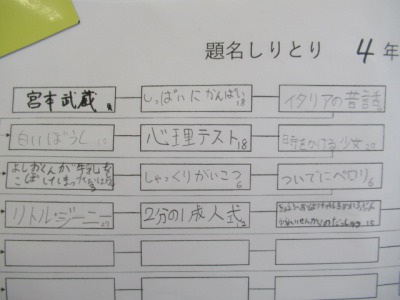 題名しりとり 4年
宮本武蔵
しっぱいにかんぱい 18
イタリアの昔話
白いぼうし 15
心理テスト 18
時をかける少女 20
よしおくんが牛乳を
こぼしてしまったおはなし
しゃっくりがいこつ 6
ついでにペロリ 6
リトル・ジーニー 29
2分の1成人式 12